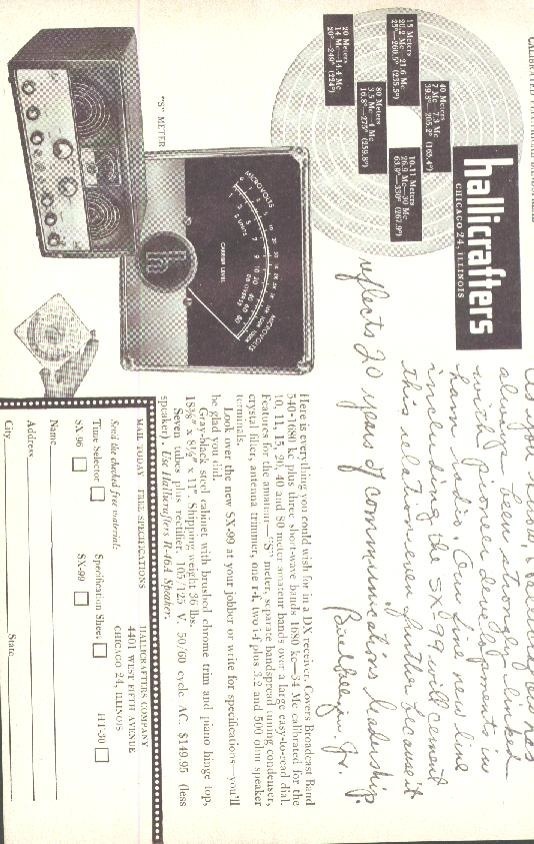 As you know, the name has
always been strongly linked
with pioneer developments in
ham radio. Our fine new line
including the SX-99 will cement
this relation even further because it
reflects 20 years of communications leadership.
hallicrafters
CHICAGO 24, ILLINOIS
40 Meters
7 Mc—7.3 Mc
10-11 Meters
26.9 Mc—30 Mc
15 Meters
20.2 Mc—21.6 Mc
80 Meters
3.5 Mc—4 Mc
20 Meters
14 Mc—14.4 Mc
"S" METER
MICROVOLTS
S UNITS
CARRIER LEVEL
DB OVER S9
MICROVOLTS
h
Here is everything you could wish for in a DX receiver. Covers Broadcast Band
540-1680 kc plus three short-wave bands 1680 kc—34 Mc calibrated for the
10, 11, 15, 20, 40 and 80 meter amateur bands over a large easy-to-read dial.
Features for the amateur—"S" meter, separate bandspread tuning condenser,
crystal filter, antenna trimmer, one r-f, two i-f plus 3.2 and 500 ohm speaker
terminals.
Look over the new SX-99 at your jobber or write for specifications—you'll
be glad you did.
Gray-black steel cabinet with brushed chrome trim and piano hinge top,
18⅜" x 8½" x 11". Shipping weight 36 lbs.
Seven tubes plus rectifier. 105/125 V. 50/60 cycle AC. $149.95 (less
speaker). Use Hallicrafters R-46A Speaker.
MAIL TODAY FREE SPECIFICATIONS
HALLICRAFTERS COMPANY
4401 WEST FIFTH AVENUE
CHICAGO 24, ILLINOIS
Send the checked free material:
Time Selector
Specification Sheet
HT-30
SX-96
SX-99
Name
Address
City
State